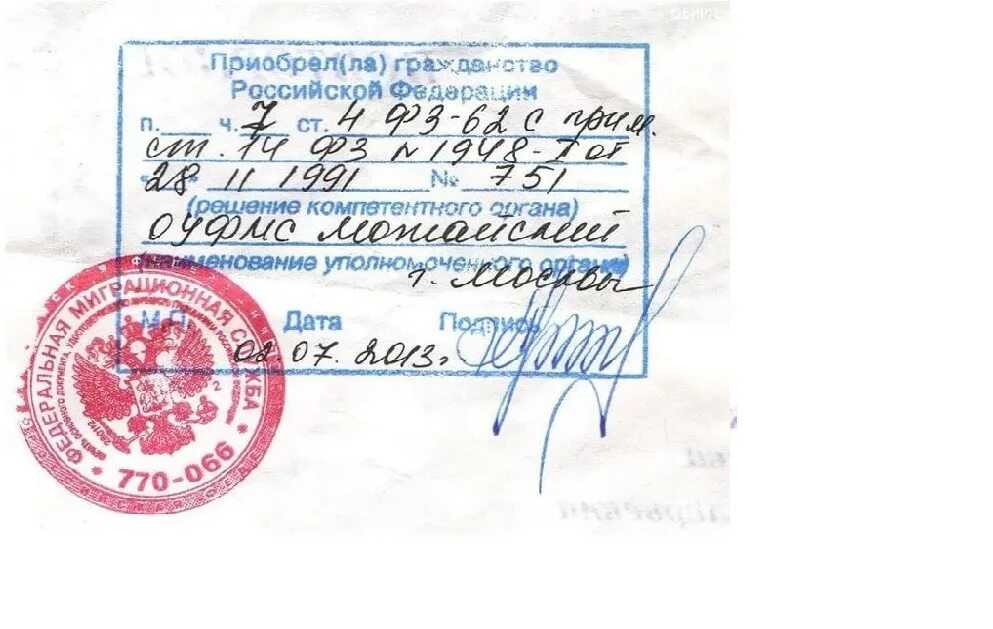 Приобрел(ла) гражданство
Российской Федерации
п.___ ч. 7 ст. 4 ФЗ-62 с прим.
ст. 14 ФЗ N 1948-I от
"28" 11 1991 № 751
(решение компетентного органа)
ОУФМС Можайский
(наименование уполномоченного органа)
г. Москвы
М.П. Дата Подпись
02 07. 2013г
ФЕДЕРАЛЬНАЯ МИГРАЦИОННАЯ СЛУЖБА
* 770-066 *